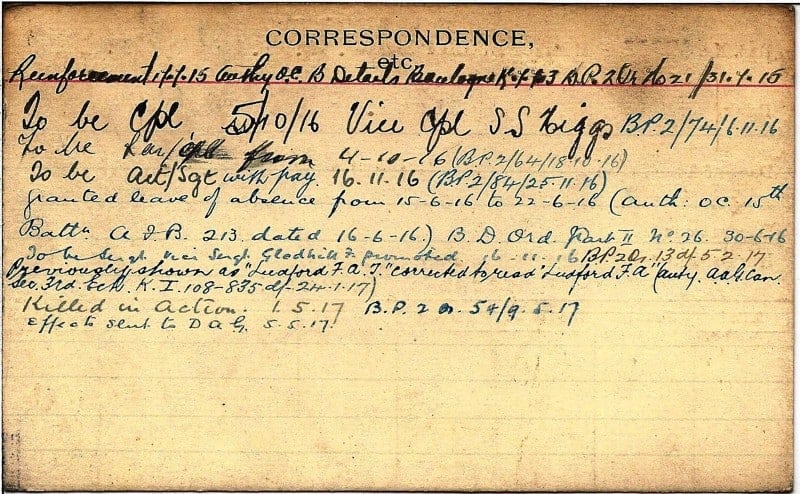 CORRESPONDENCE,
etc.
Reinforcement 17.7.15 Authy O.C. B Details Boulogne K. B.P. 2 Or No 21/31.7.15
To be Cpl 5/10/16 Vice Cpl S S Higgs B.P. 2/74/6.11.16
To be from 4-10-16 (B.P. 2/64/18.10.16)
To be Act/Sgt with pay 16.11.16 (B.P. 2/84/25.11.16)
Granted leave of absence from 15-6-16 to 22-6-16 (Auth: OC 15th
Battn A.F.B. 213 dated 16-6-16.) B.D. Ord. Part II No 26. 30-6-16
To be Sergt vice Sergt Gledhill F. promoted. 16-11-16 B.P. 2 Or. 13 d/ 5.2.17.
Previously shown as "Ludford F.A.J." corrected to read "Ludford F.A" (auty. A.A.G. Can.
Sec. 3rd. Ech. K.I. 108-835 d/- 24-1-17)
Killed in Action. 1.5.17 B.P. 2 Or. 54/9.5.17
Effects sent to D A G. 5.5.17.